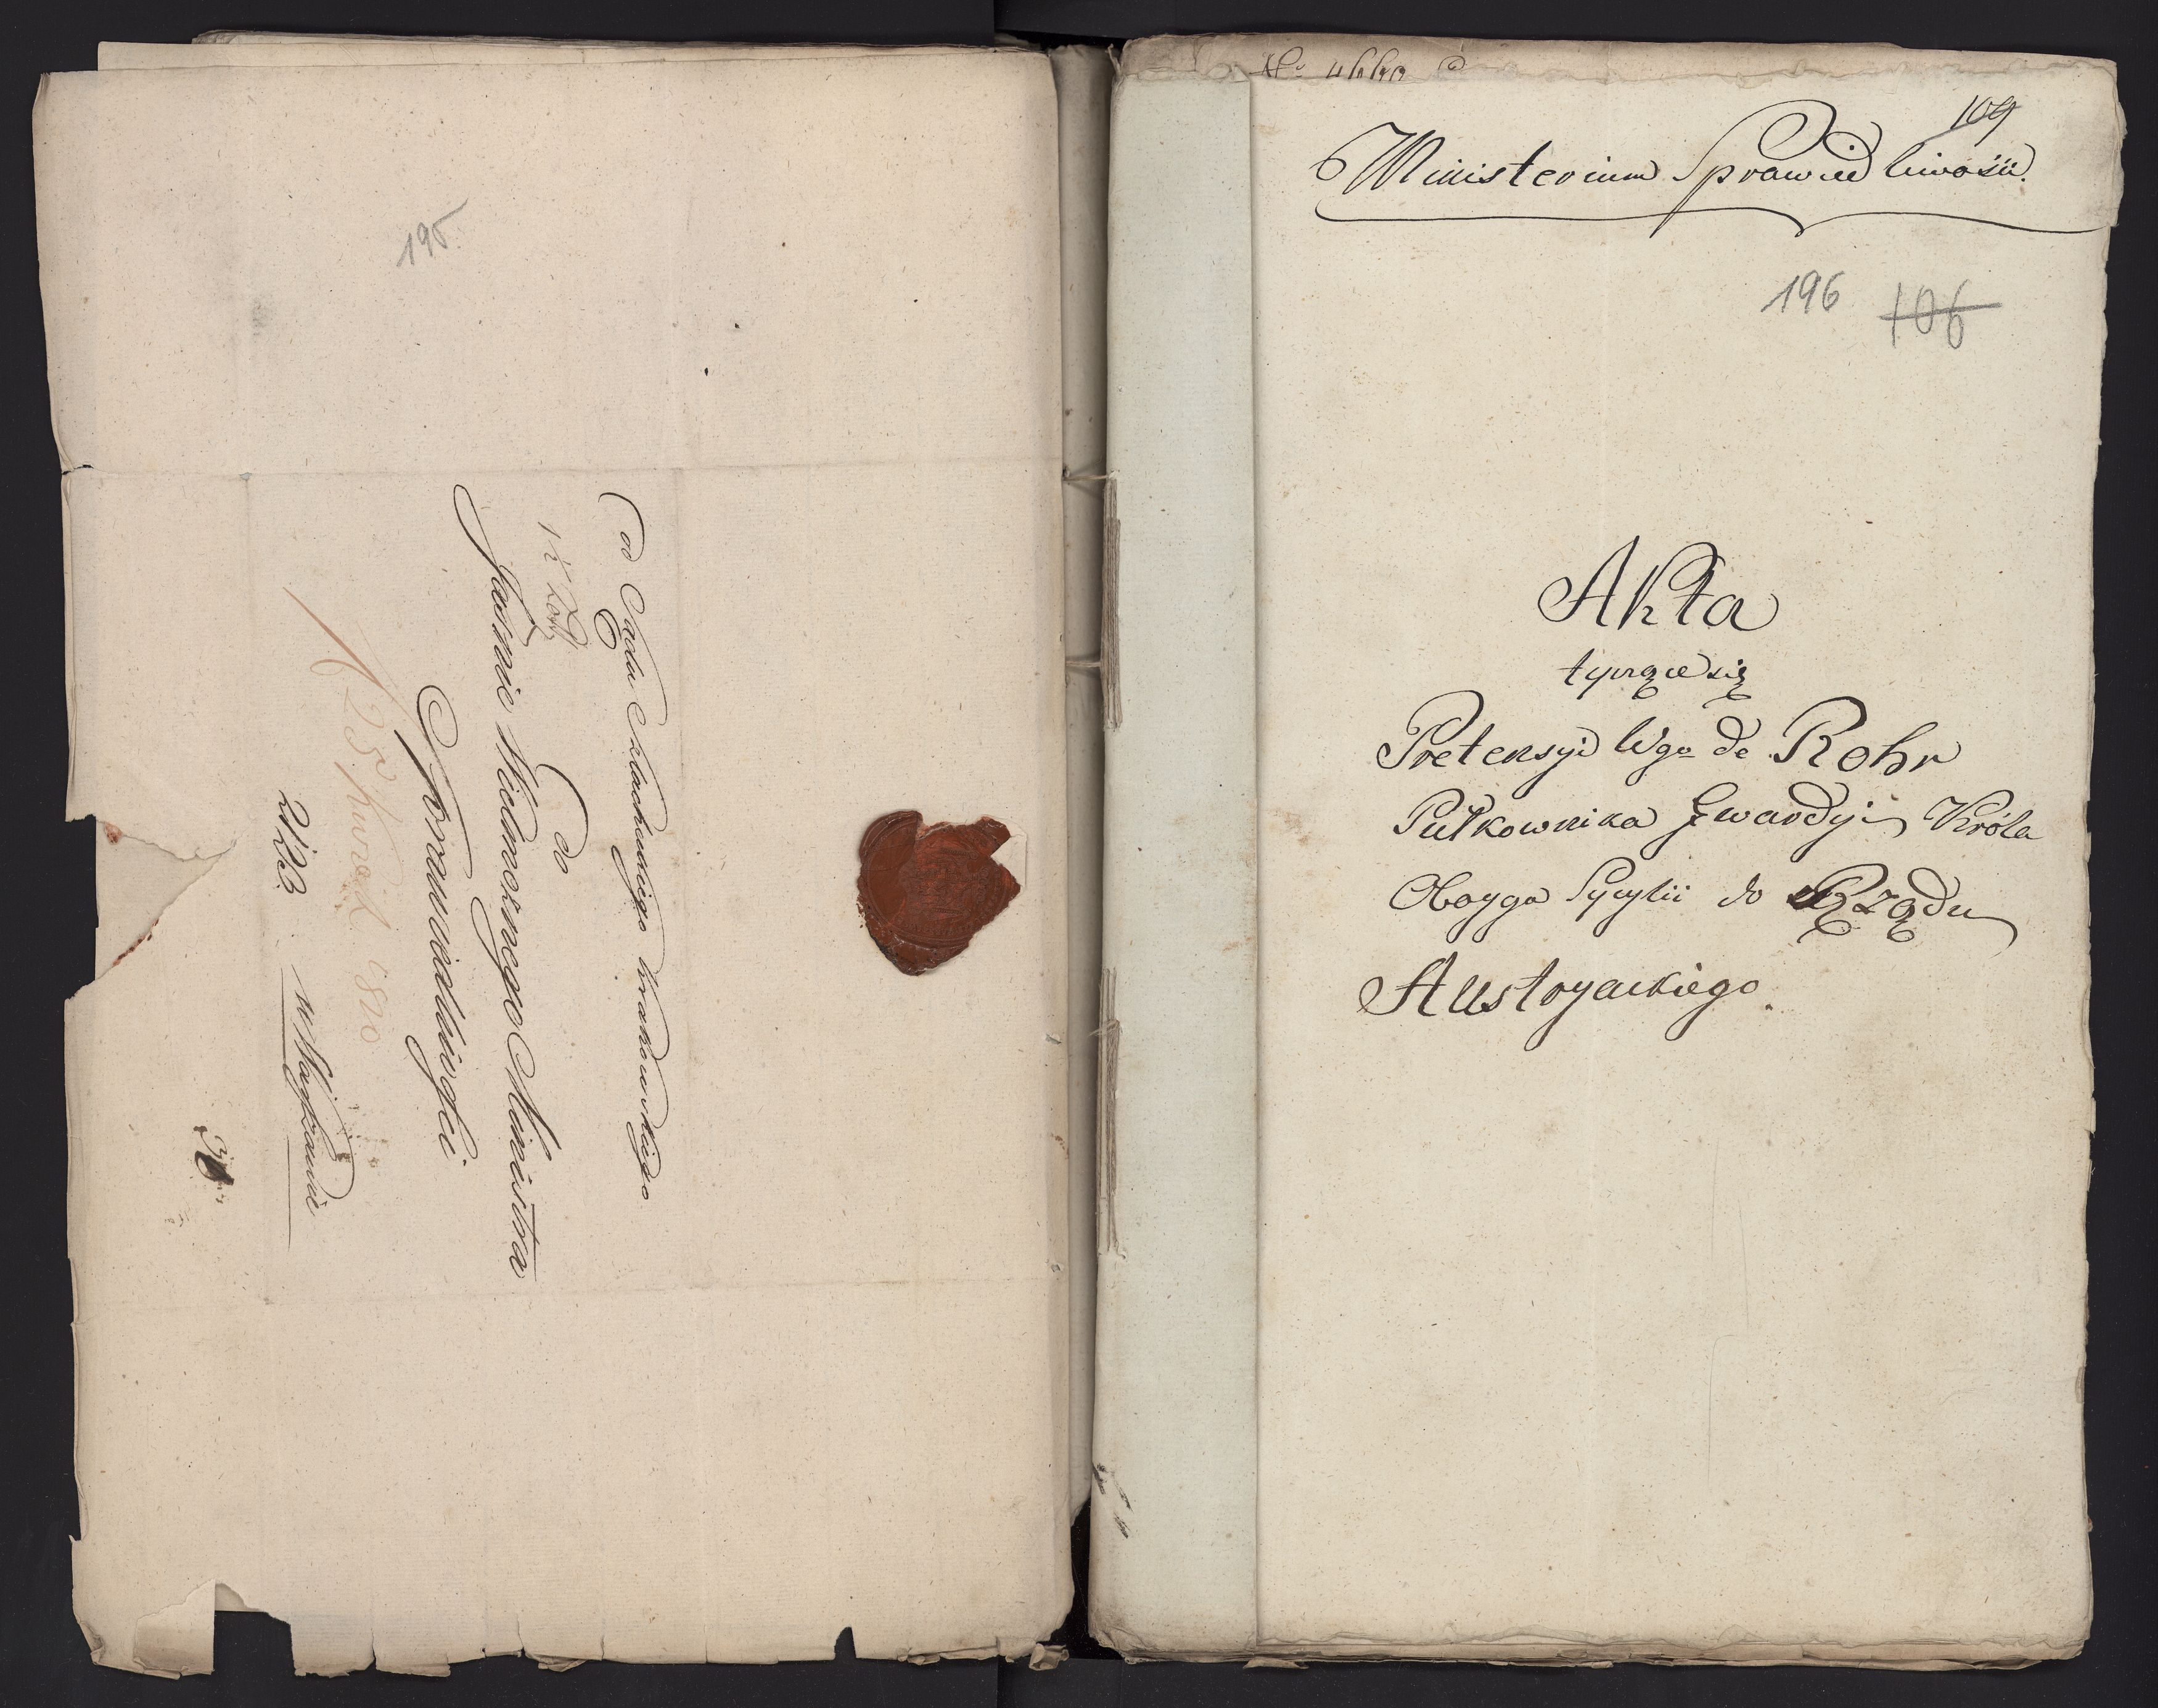 195.
od Sądu Szlacheckiego Krakowskiego
do
Jaśnie Wielmożnego Ministra
Sprawiedliwości
25 Kwiet. 1810
2123
w Warszawie
No 4660
109
Ministerium Sprawiedliwości.
196 106
Akta
tyczące się
Pretensyi Wgo de Rohr
Pułkownika Gwardyi Króla
Oboyga Sycylii do Rządu
Austryackiego.